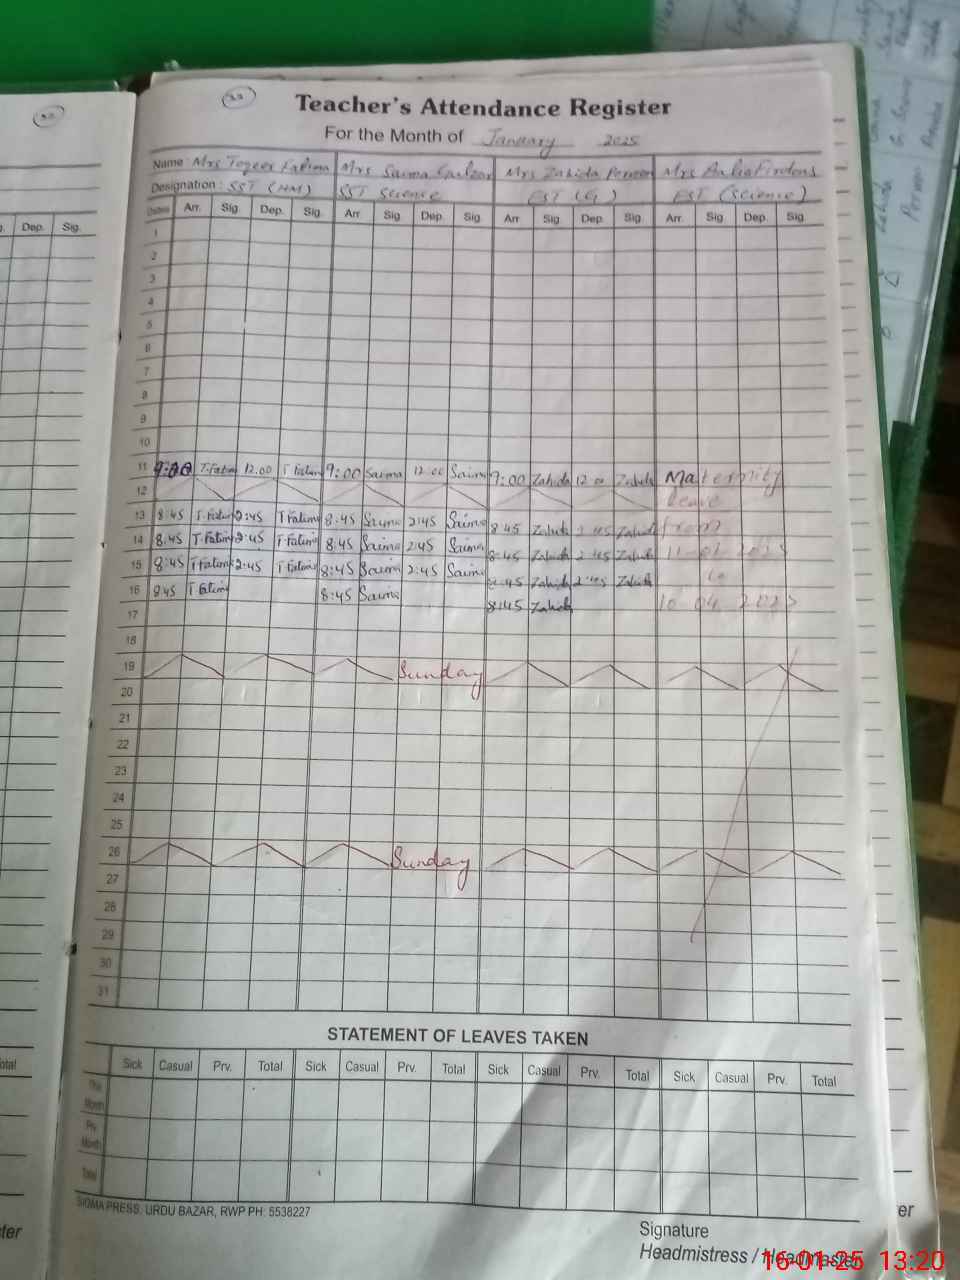 32
Teacher's Attendance Register
For the Month of January 2025
Name : Mrs Toqeer Fatima Mrs Saima Gulzar Mrs Zahida Perveen Mrs
Designation : SST (HM) SST Science EST (G) EST (Science)
Dates Arr. Sig. Dep. Sig. Arr Sig. Dep. Sig. Arr Sig. Dep. Sig. Arr. Sig. Dep. Sig.
1
2
3
4
5
6
7
8
9
10
11 9:00 T.Fatima 12.00 T Fatima 9:00 Saima 12:00 Saima 9:00 Zahida 12 00 Zahida Maternity
12 Leave
13 8:45 T.Fatima 2:45 T Fatima 8:45 Saima 2:45 Saima 8 45 Zahida 2:45 Zahida from
14 8:45 T.Fatima 2:45 T Fatima 8:45 Saima 2:45 Saima 8:45 Zahida 2:45 Zahida 11-01 2025
15 8:45 T Fatima 2:45 T Fatima 8:45 Saima 2:45 Saima 8:45 Zahida 2:45 Zahida to
16 8:45 T Fatima 8:45 Saima 8:45 Zahida 10 04 2025
17
18
19 Sunday
20
21
22
23
24
25
26 Sunday
27
28
29
30
31
STATEMENT OF LEAVES TAKEN
Sick Casual Prv. Total Sick Casual Prv. Total Sick Casual Prv. Total Sick Casual Prv. Total
This Month
Prv. Month
Total
SIGMA PRESS. URDU BAZAR, RWP PH: 5538227
Signature
Headmistress / Headmaster
16-01-25 13:20
32
Dep. Sig.